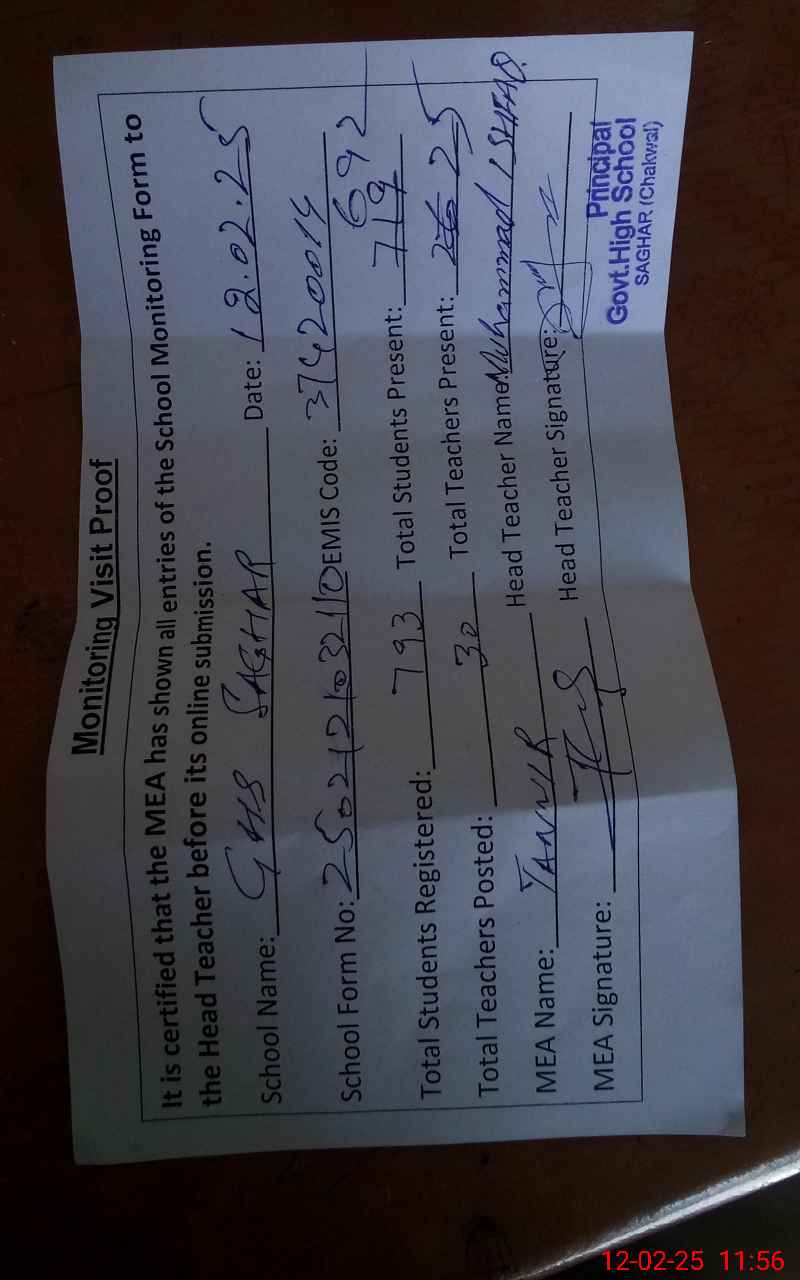 Monitoring Visit Proof
It is certified that the MEA has shown all entries of the School Monitoring Form to
the Head Teacher before its online submission.
School Name: GHS SAGHAR Date: 12.02.25
School Form No: 2502121032110 EMIS Code: 37420014
692
Total Students Registered: 793 Total Students Present: 719
Total Teachers Posted: 30 Total Teachers Present: 26 25
MEA Name: TANVIR Head Teacher Name: Muhammad ISHFAQ
MEA Signature: Head Teacher Signature:
Principal
Govt.High School
SAGHAR (Chakwal)
12-02-25 11:56